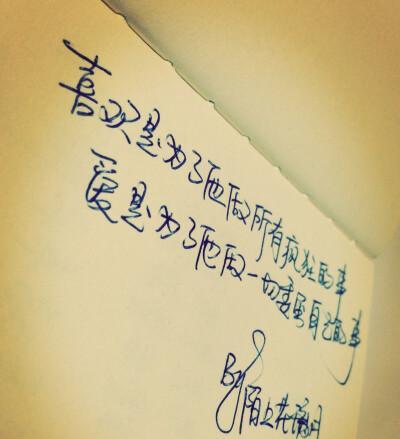 喜欢是为了他做所有疯狂的事
爱是为了他做一切委屈自己的事
By 陌上花